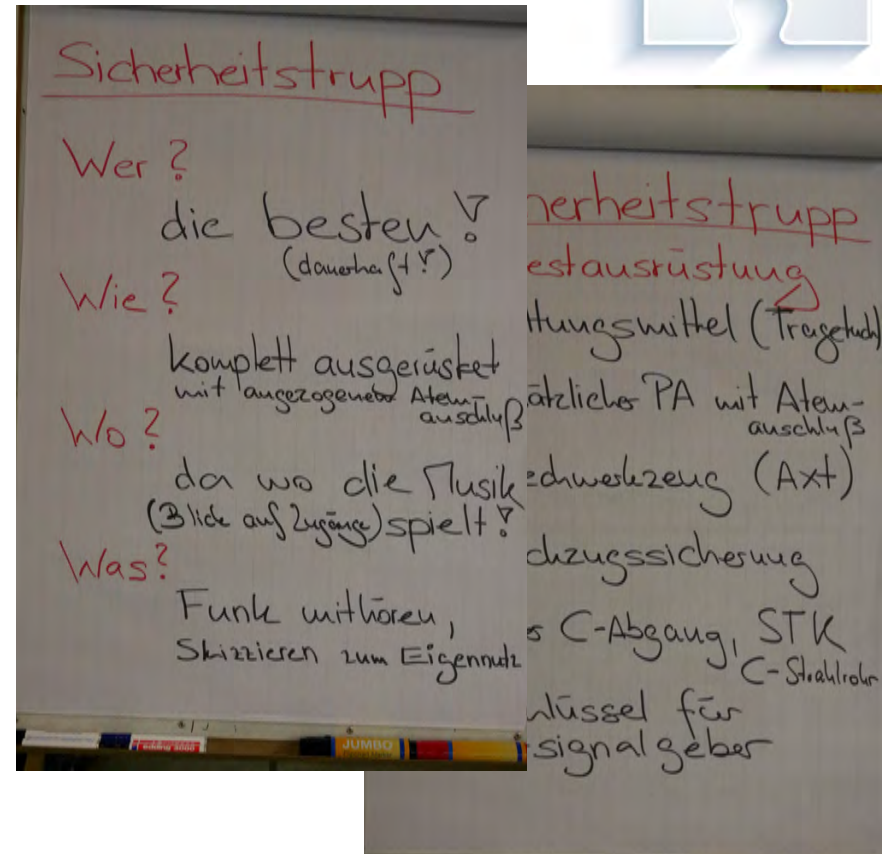 Sicherheitstrupp
Wer?
die besten!
(dauerhaft!)
Wie?
komplett ausgerüstet
mit angezogenem Atem-
anschluß
Wo?
da wo die Musik
(Blick auf Zugänge) spielt!
Was?
Funk mithören,
Skizzieren zum Eigennutz
JUMBO
herheitstrupp
estausrüstung
ttungsmittel (Tragetuch)
ätzlicher PA mit Atem-
anschluß
echwerkzeug (Axt)
chzugssicherung
s C-Abgang, STK
C-Strahlrohr
lüssel für
signalgeber